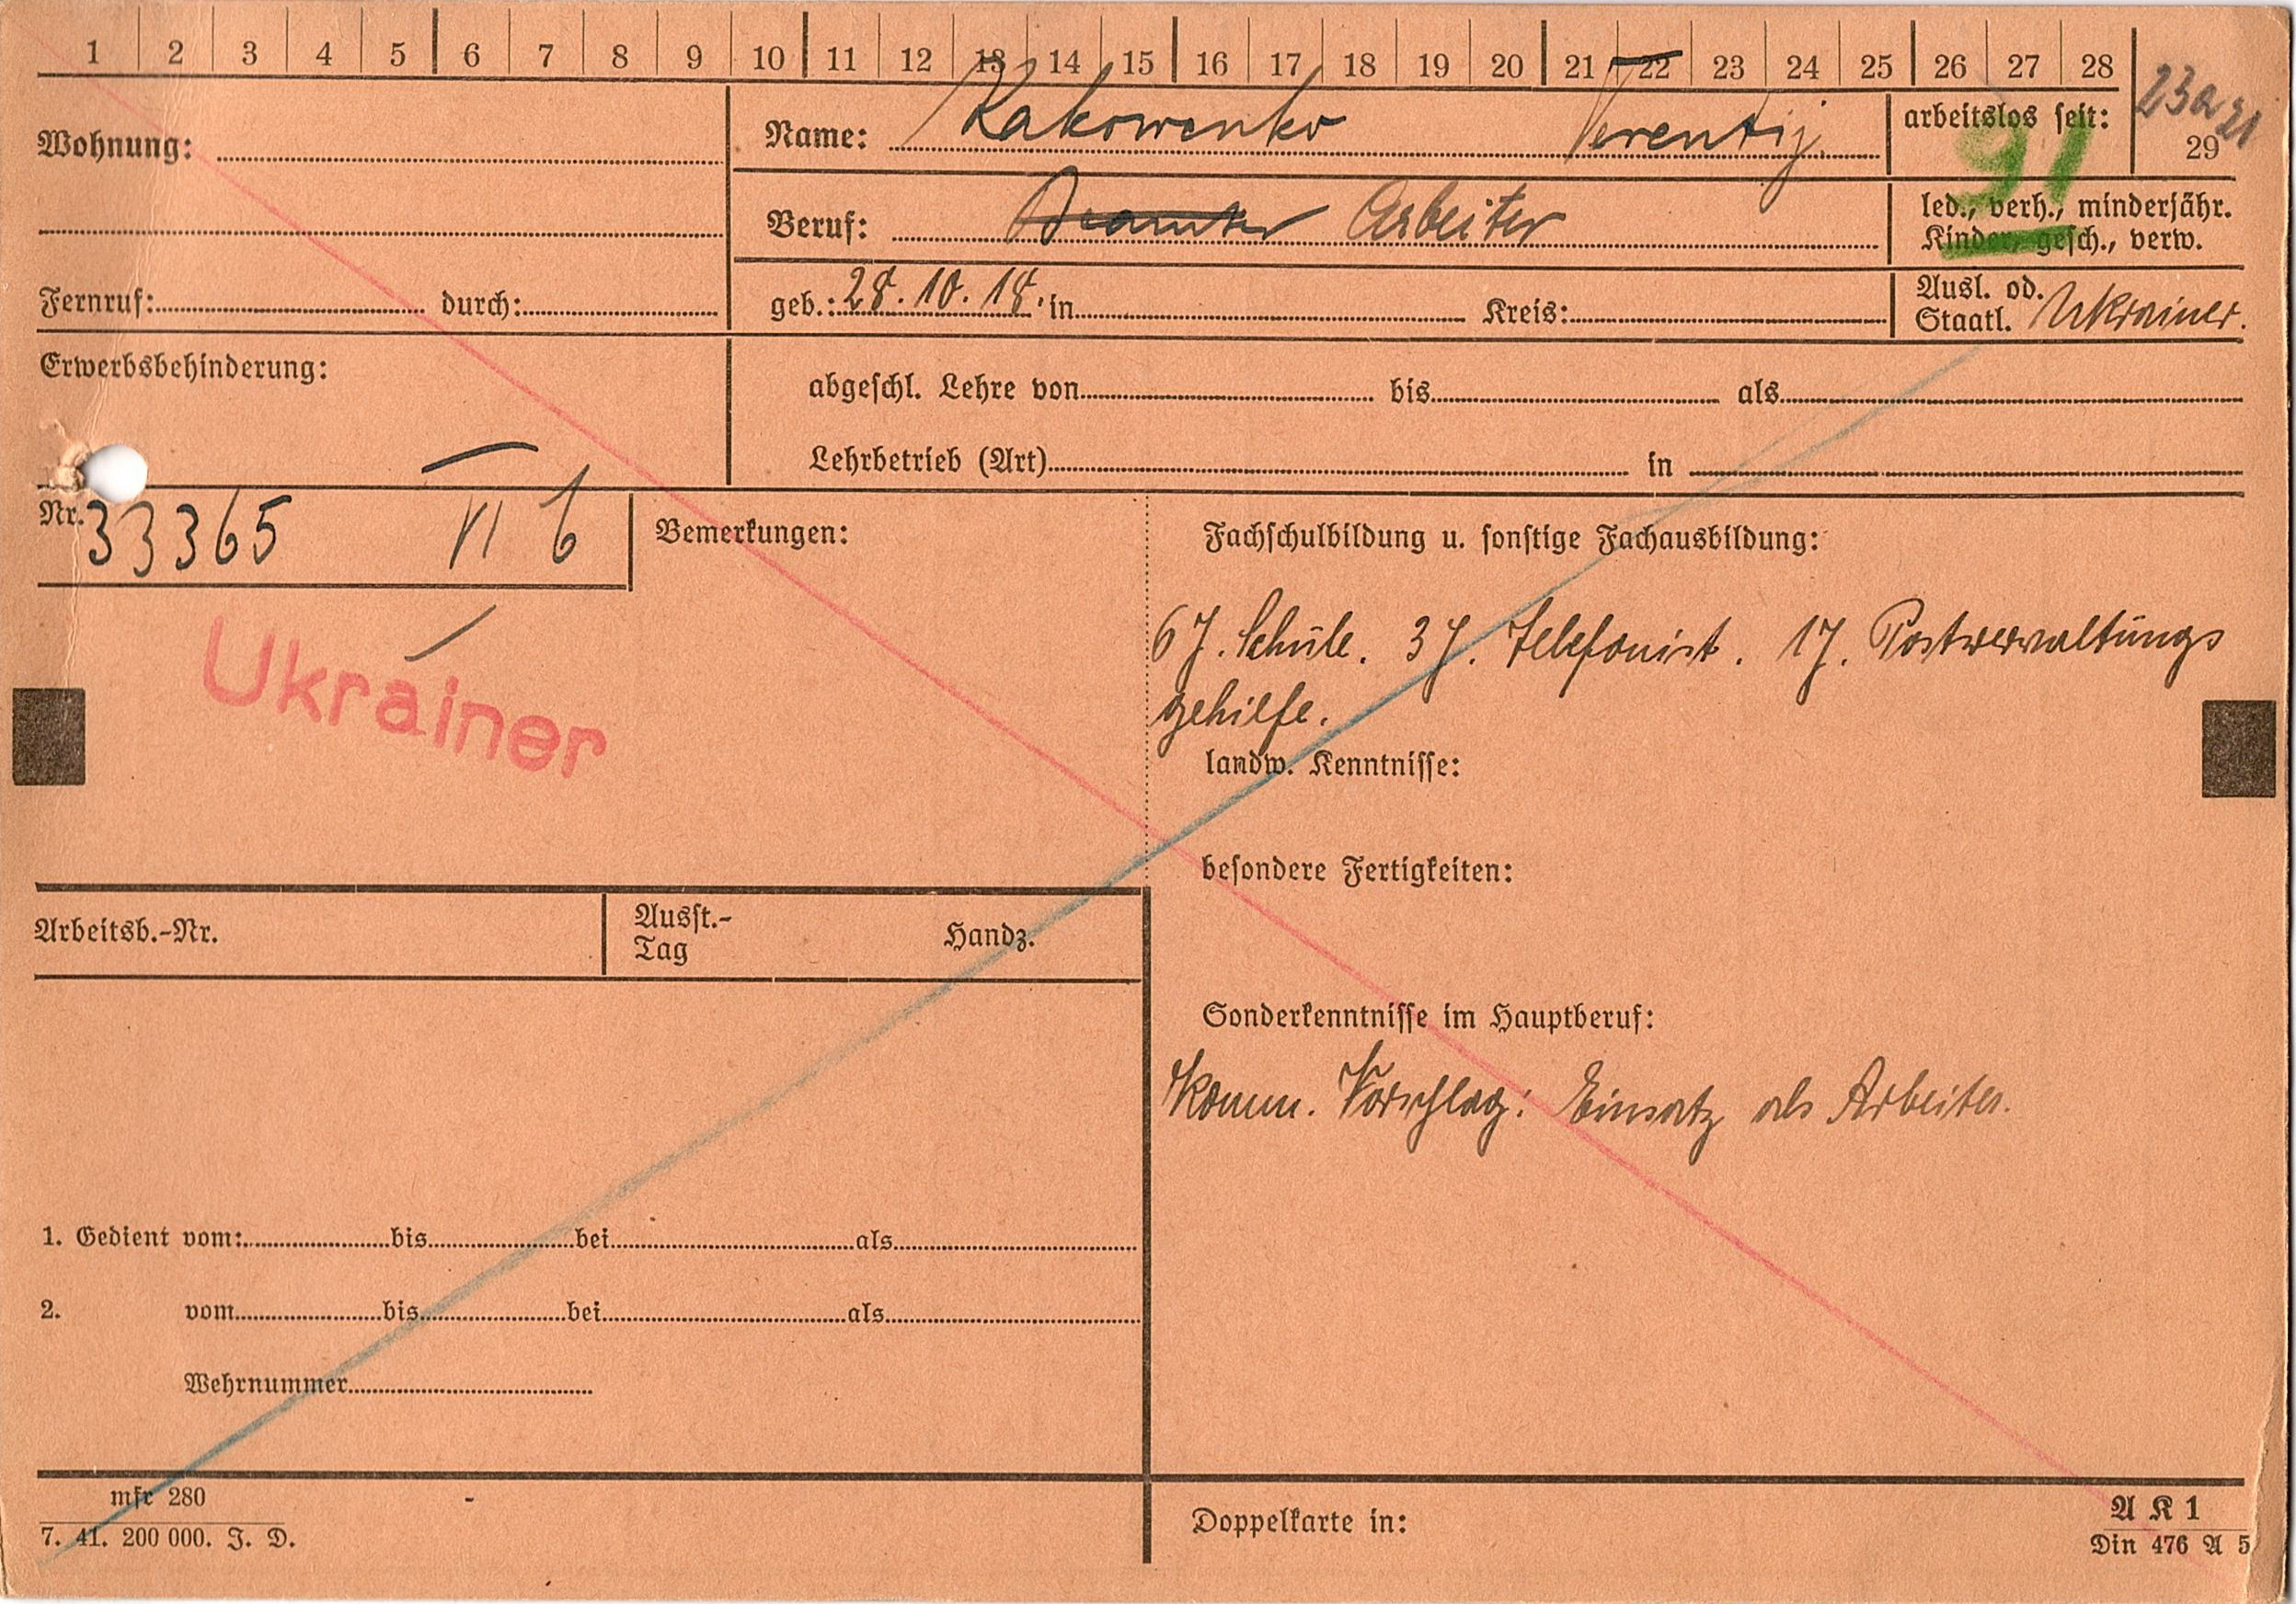 1 2 3 4 5 6 7 8 9 10 11 12 13 14 15 16 17 18 19 20 21 22 23 24 25 26 27 28
23a 21
29
Wohnung:
Name: Rakowenko Terentij
arbeitslos seit:
91
Beruf: Beamter Arbeiter
led., verh., minderjähr.
Kinder, gesch., verw.
Fernruf: durch:
geb.: 28. 10. 18. in Kreis:
Ausl. od.
Staatl. Ukrainer.
Erwerbsbehinderung:
abgeschl. Lehre von bis als
Lehrbetrieb (Art) in
Nr. 33365 VI 6
Bemerkungen:
Fachschulbildung u. sonstige Fachausbildung:
Ukrainer
6 J. Schule. 3 J. Telefonist. 1 J. Postverwaltungs
gehilfe.
landw. Kenntnisse:
besondere Fertigkeiten:
Arbeitsb.-Nr.
Ausst.-
Tag
Handz.
Sonderkenntnisse im Hauptberuf:
Komm. Vorschlag: Einsatz als Arbeiter.
1. Gedient vom: bis bei als
2. vom bis bei als
Wehrnummer
mfr 280
7. 41. 200 000. J. D.
Doppelkarte in:
A K 1
Din 476 A 5